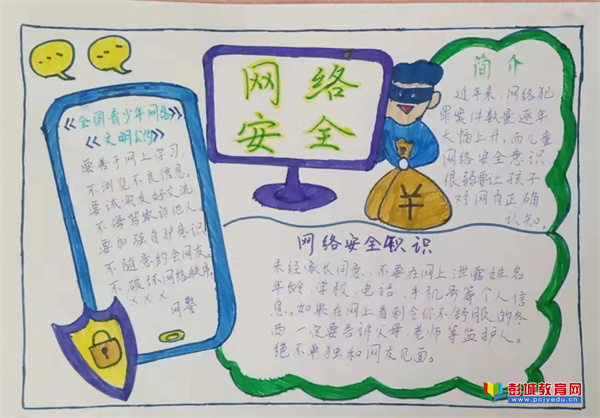 网络
安全
《全国青少年网络
文明公约》
要善于网上学习,
不浏览不良信息。
要诚实友好交流
不侮辱欺诈他人。
要加强自护意识
不随意约会网友。
不破坏网络秩序。
×××
网警
简介
近年来,网络犯
罪案件数量逐年
大幅上升,而儿童
网络安全意识
很弱要让孩子
对网有正确
认知。
¥
网络安全知识
未经家长同意、不要在网上泄露姓名
年龄、学校、电话、手机号等个人信
息。如果在网上看到令你不舒服的东
西一定要告诉父母、老师等监护人。
绝不单独和网友见面。
彭城教育网
www.pcjyedu.cn